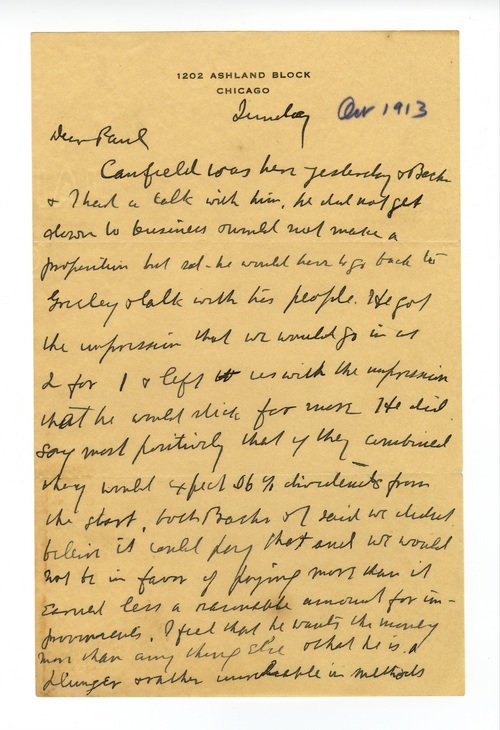 1202 ASHLAND BLOCK
CHICAGO
Tuesday Oct 1913
Dear Paul
Canfield was here yesterday & Bachs
& I had a talk with him, he did not get
down to business & would not make a
proposition but sd - he would have to go back to
Greeley & talk with his people. He got
the impression that we would go in at
2 for 1 & left us with the impression
that he would stick for more He did
say most positively that if they combined
they would expect 6% dividends from
the start, both Bachs & I said we didnt
believe it could pay that and we would
not be in favor of paying more than it
earned less a reasonable amount for im-
provements. I feel that he wants the money
more than any thing else & that he is a
plunger & rather in methods